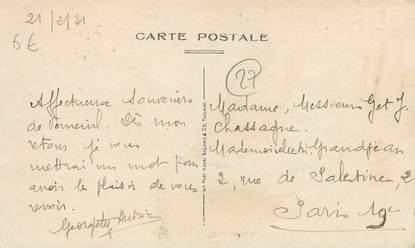 21/2/31
6€
CARTE POSTALE
27
Affectueux Souvenirs
de Verneuil. Dès mon
retour je vous
mettrai un mot pour
avoir le plaisir de vous
revoir.
Georgette
Madame, Messieurs G et J.
Chassagne.
Mademoiselle H. Grandjean
2, rue de Palestine, 2
Paris 19e